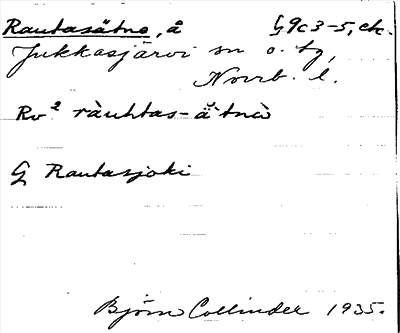 Rautasätno, å G 9c3-5, etc.
Jukkasjärvi sn o. tg,
Norrb. l.
Rv² ràuhtas-ä̌tnò
G Rautasjoki
Björn Collinder 1935.